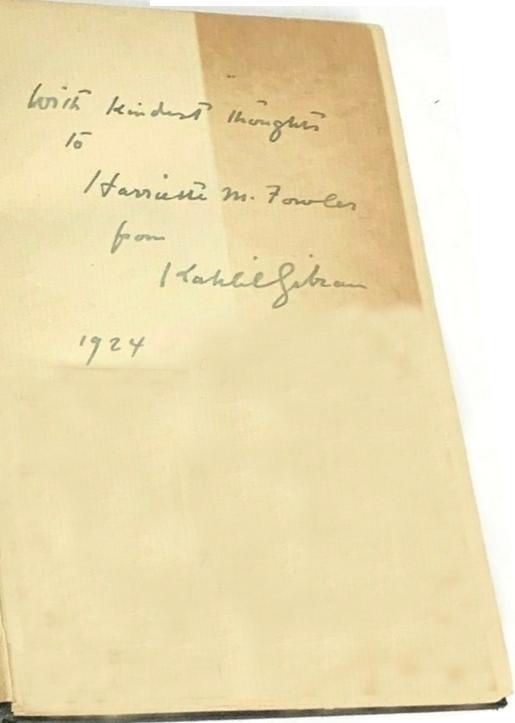 With kindest thoughts
to
Harriette M. Fowler
from
Kahlil Gibran
1924